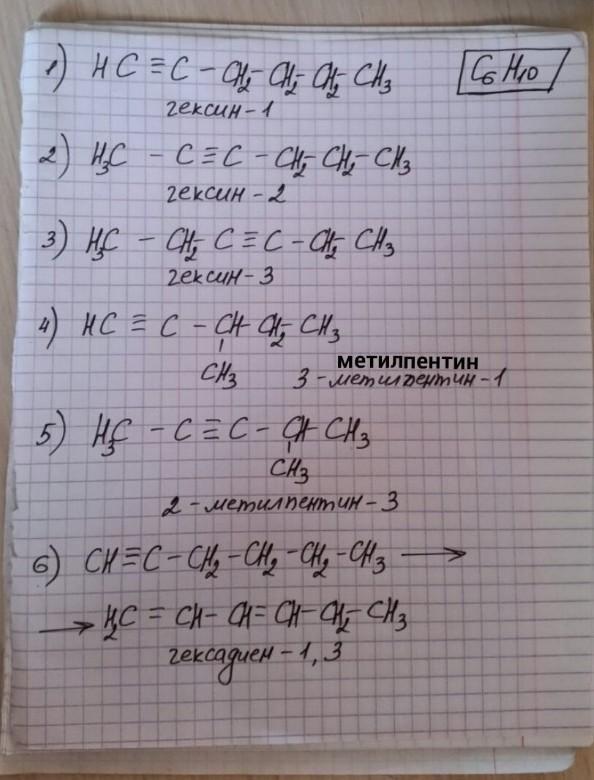 1) HC ≡ C – CH₂ – CH₂ – CH₂ – CH₃
C₆H₁₀
гексин – 1
2) H₃C – C ≡ C – CH₂ – CH₂ – CH₃
гексин – 2
3) H₃C – CH₂ – C ≡ C – CH₂ – CH₃
гексин – 3
4) HC ≡ C – CH – CH₂ – CH₃
CH₃
метилпентин
3 – метилпентин – 1
5) H₃C – C ≡ C – CH – CH₃
CH₃
2 – метилпентин – 3
6) CH ≡ C – CH₂ – CH₂ – CH₂ – CH₃ →
→ H₂C = CH – CH = CH – CH₂ – CH₃
гексадиен – 1, 3